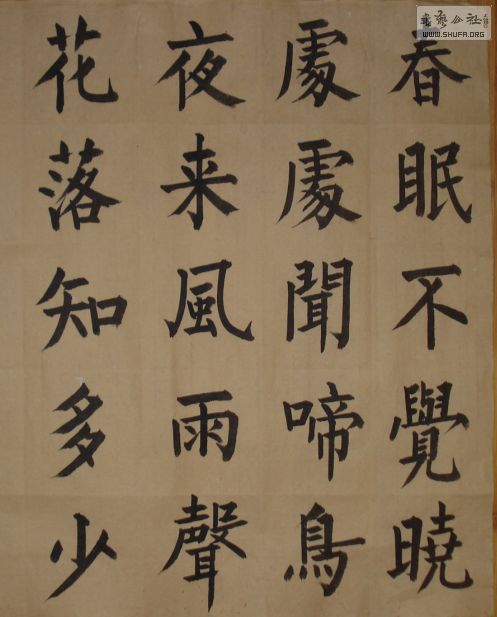 春眠不覺暁
處處聞啼鳥
夜来風雨聲
花落知多少
WWW.SHUFA.ORG